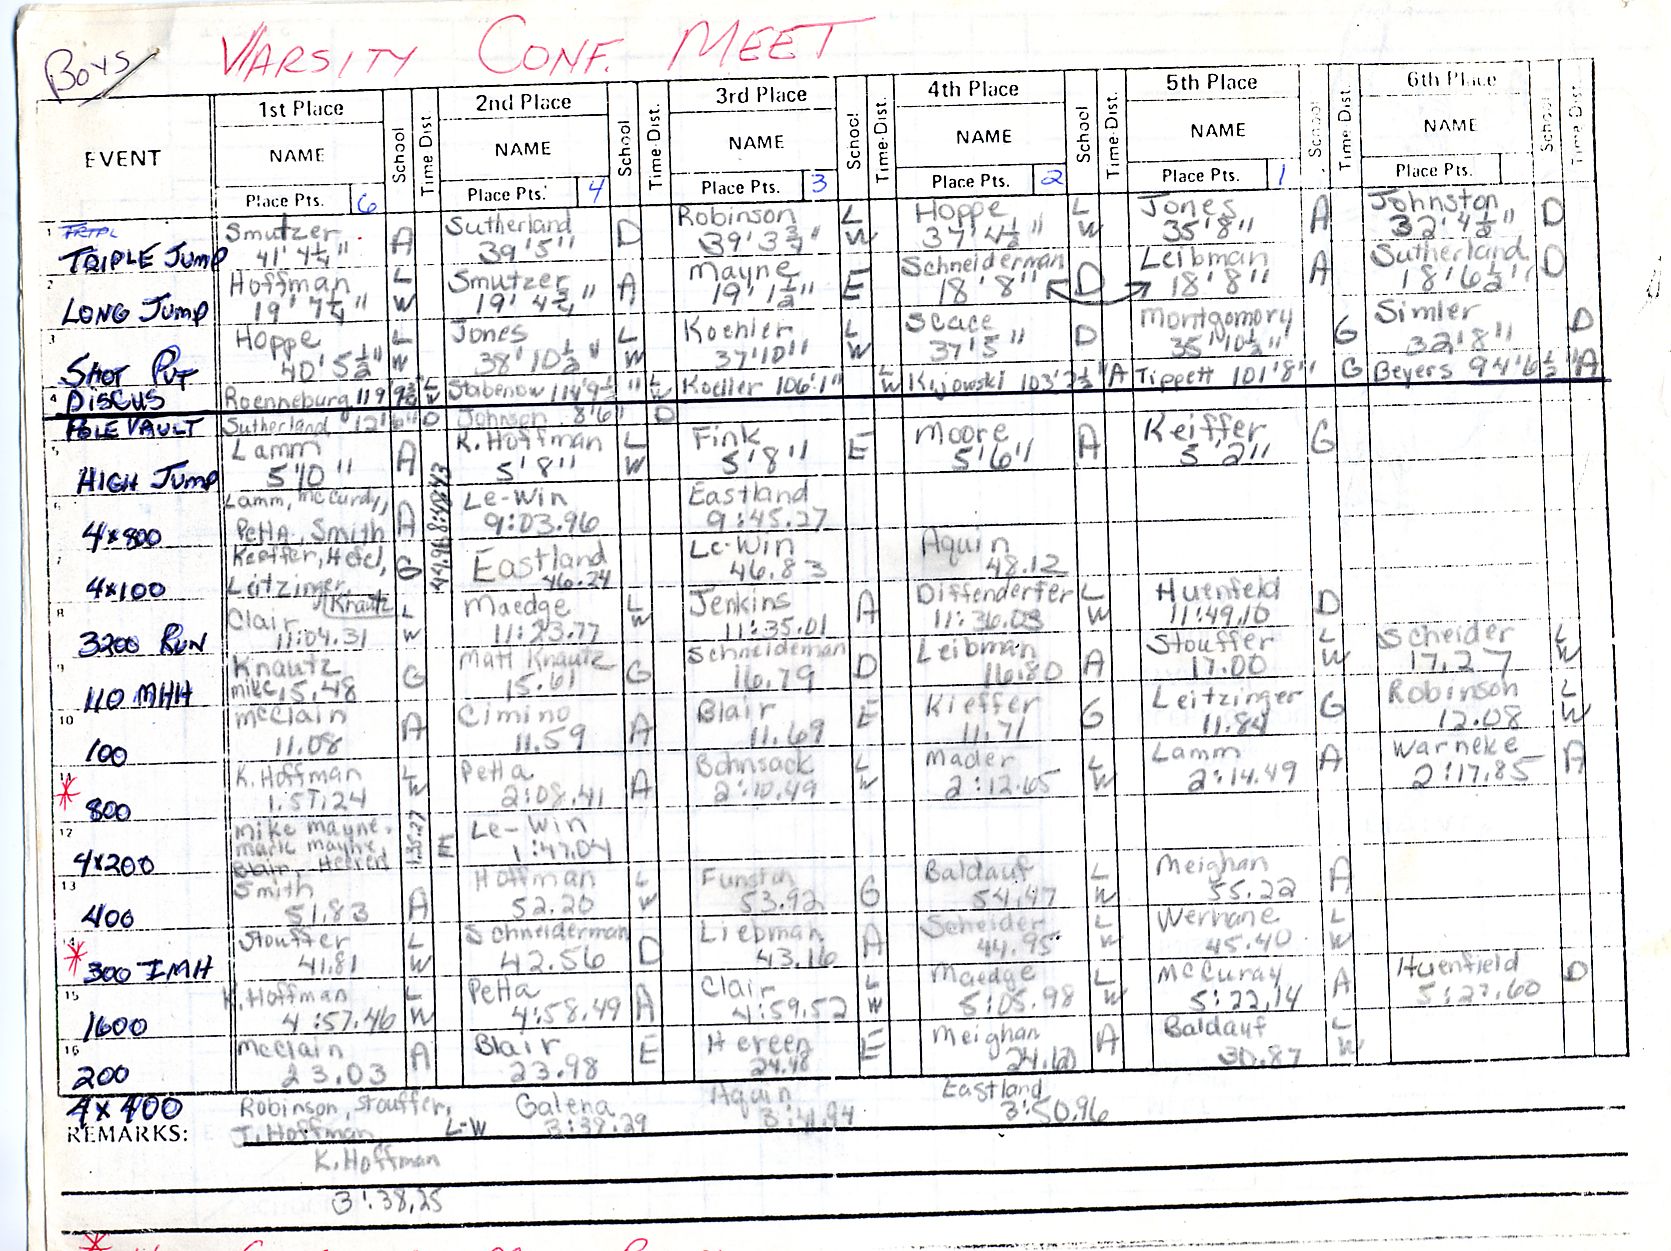 Boys VARSITY CONF. MEET
EVENT
1st Place NAME Place Pts. 6 School Time Dist
2nd Place NAME Place Pts. 4 School Time-Dist.
3rd Place NAME Place Pts. 3 School Time-Dist.
4th Place NAME Place Pts. 2 School Time-Dist.
5th Place NAME Place Pts. 1 School Time Dist.
6th Place NAME Place Pts. School Time Dist
1 TRIPLE JUMP Smutzer 41' 4¼" A Sutherland 39'5" D Robinson 39' 3¾" LW Hoppe 37' 4½" LW Jones 35'8" A Johnston 32' 4½" D
2 LONG JUMP Hoffman 19' 7¼" LW Smutzer 19' 4¼" A Mayne 19' 1½" E Schneiderman 18' 8" D Leibman 18' 8" A Sutherland 18' 6½" D
3 SHOT PUT Hoppe 40' 5½" LW Jones 38' 10½" LW Koehler 37'10" LW Scace 37'5" D Montgomory 35' 10½" G Simler 32'8" D
4 DISCUS Roenneburg 119 9¾" LW Stabenow 114'9½" LW Koeller 106'1" LW Kijowski 103' 2½" A Tippett 101'8" G Beyers 94'6½" A
POLE VAULT Sutherland 12'6" D Johnson 8'6" D
5 HIGH JUMP Lamm 5'10" A K. Hoffman 5'8" LW Fink 5'8" E Moore 5'6" A Keiffer 5'2" G
6 4x800 Lamm, McCurdy, Petta, Smith A 8:48.43 Le-Win 9:03.96 Eastland 9:45.27
7 4x100 Keeffer, Hefel, Leitzinger, Knautz G 44.96 Eastland 46.24 Le-Win 46.83 Aquin 48.12
8 3200 RUN Clair 11:04.31 LW Maedge 11:23.77 LW Jenkins 11:35.01 A Diffenderfer 11:36.03 LW Huenfeld 11:49.10 D
9 110 MHH Knautz mike 15.48 G Matt Knautz 15.61 G Schneideman 16.79 D Leibman 16.80 A Stouffer 17.00 LW Scheider 17.27 LW
10 100 McClain 11.08 A Cimino 11.59 A Blair 11.69 E Kieffer 11.71 G Leitzinger 11.84 G Robinson 12.08 LW
11 * 800 K. Hoffman 1:57.24 LW Petta 2:08.41 A Bohnsack 2:10.49 LW Mader 2:12.65 LW Lamm 2:14.49 A Warneke 2:17.85 A
12 4x200 mike mayne, mark mayne, Blair, Hereen 1:35.27 E Le-Win 1:47.04
13 400 Smith 51.83 A Hoffman 52.20 LW Funston 53.92 G Baldauf 54.47 LW Meighan 55.22 A
14 * 300 IMH Stouffer 41.81 LW Schneiderman 42.56 D Liebman 43.16 A Scheider 44.95 LW Wernane 45.40 LW
15 1600 K. Hoffman 4:57.46 LW Petta 4:58.49 A Clair 4:59.52 LW Maedge 5:05.98 LW McCuray 5:22.14 A Huenfield 5:27.60 D
16 200 McClain 23.03 A Blair 23.98 E Hereen 24.48 E Meighan 24.60 A Baldauf 30.87 LW
4x400 Robinson, Stouffer, J. Hoffman, K. Hoffman 3:38.25 L-W Galena 3:39.29 Aquin Eastland 3:50.96
REMARKS: